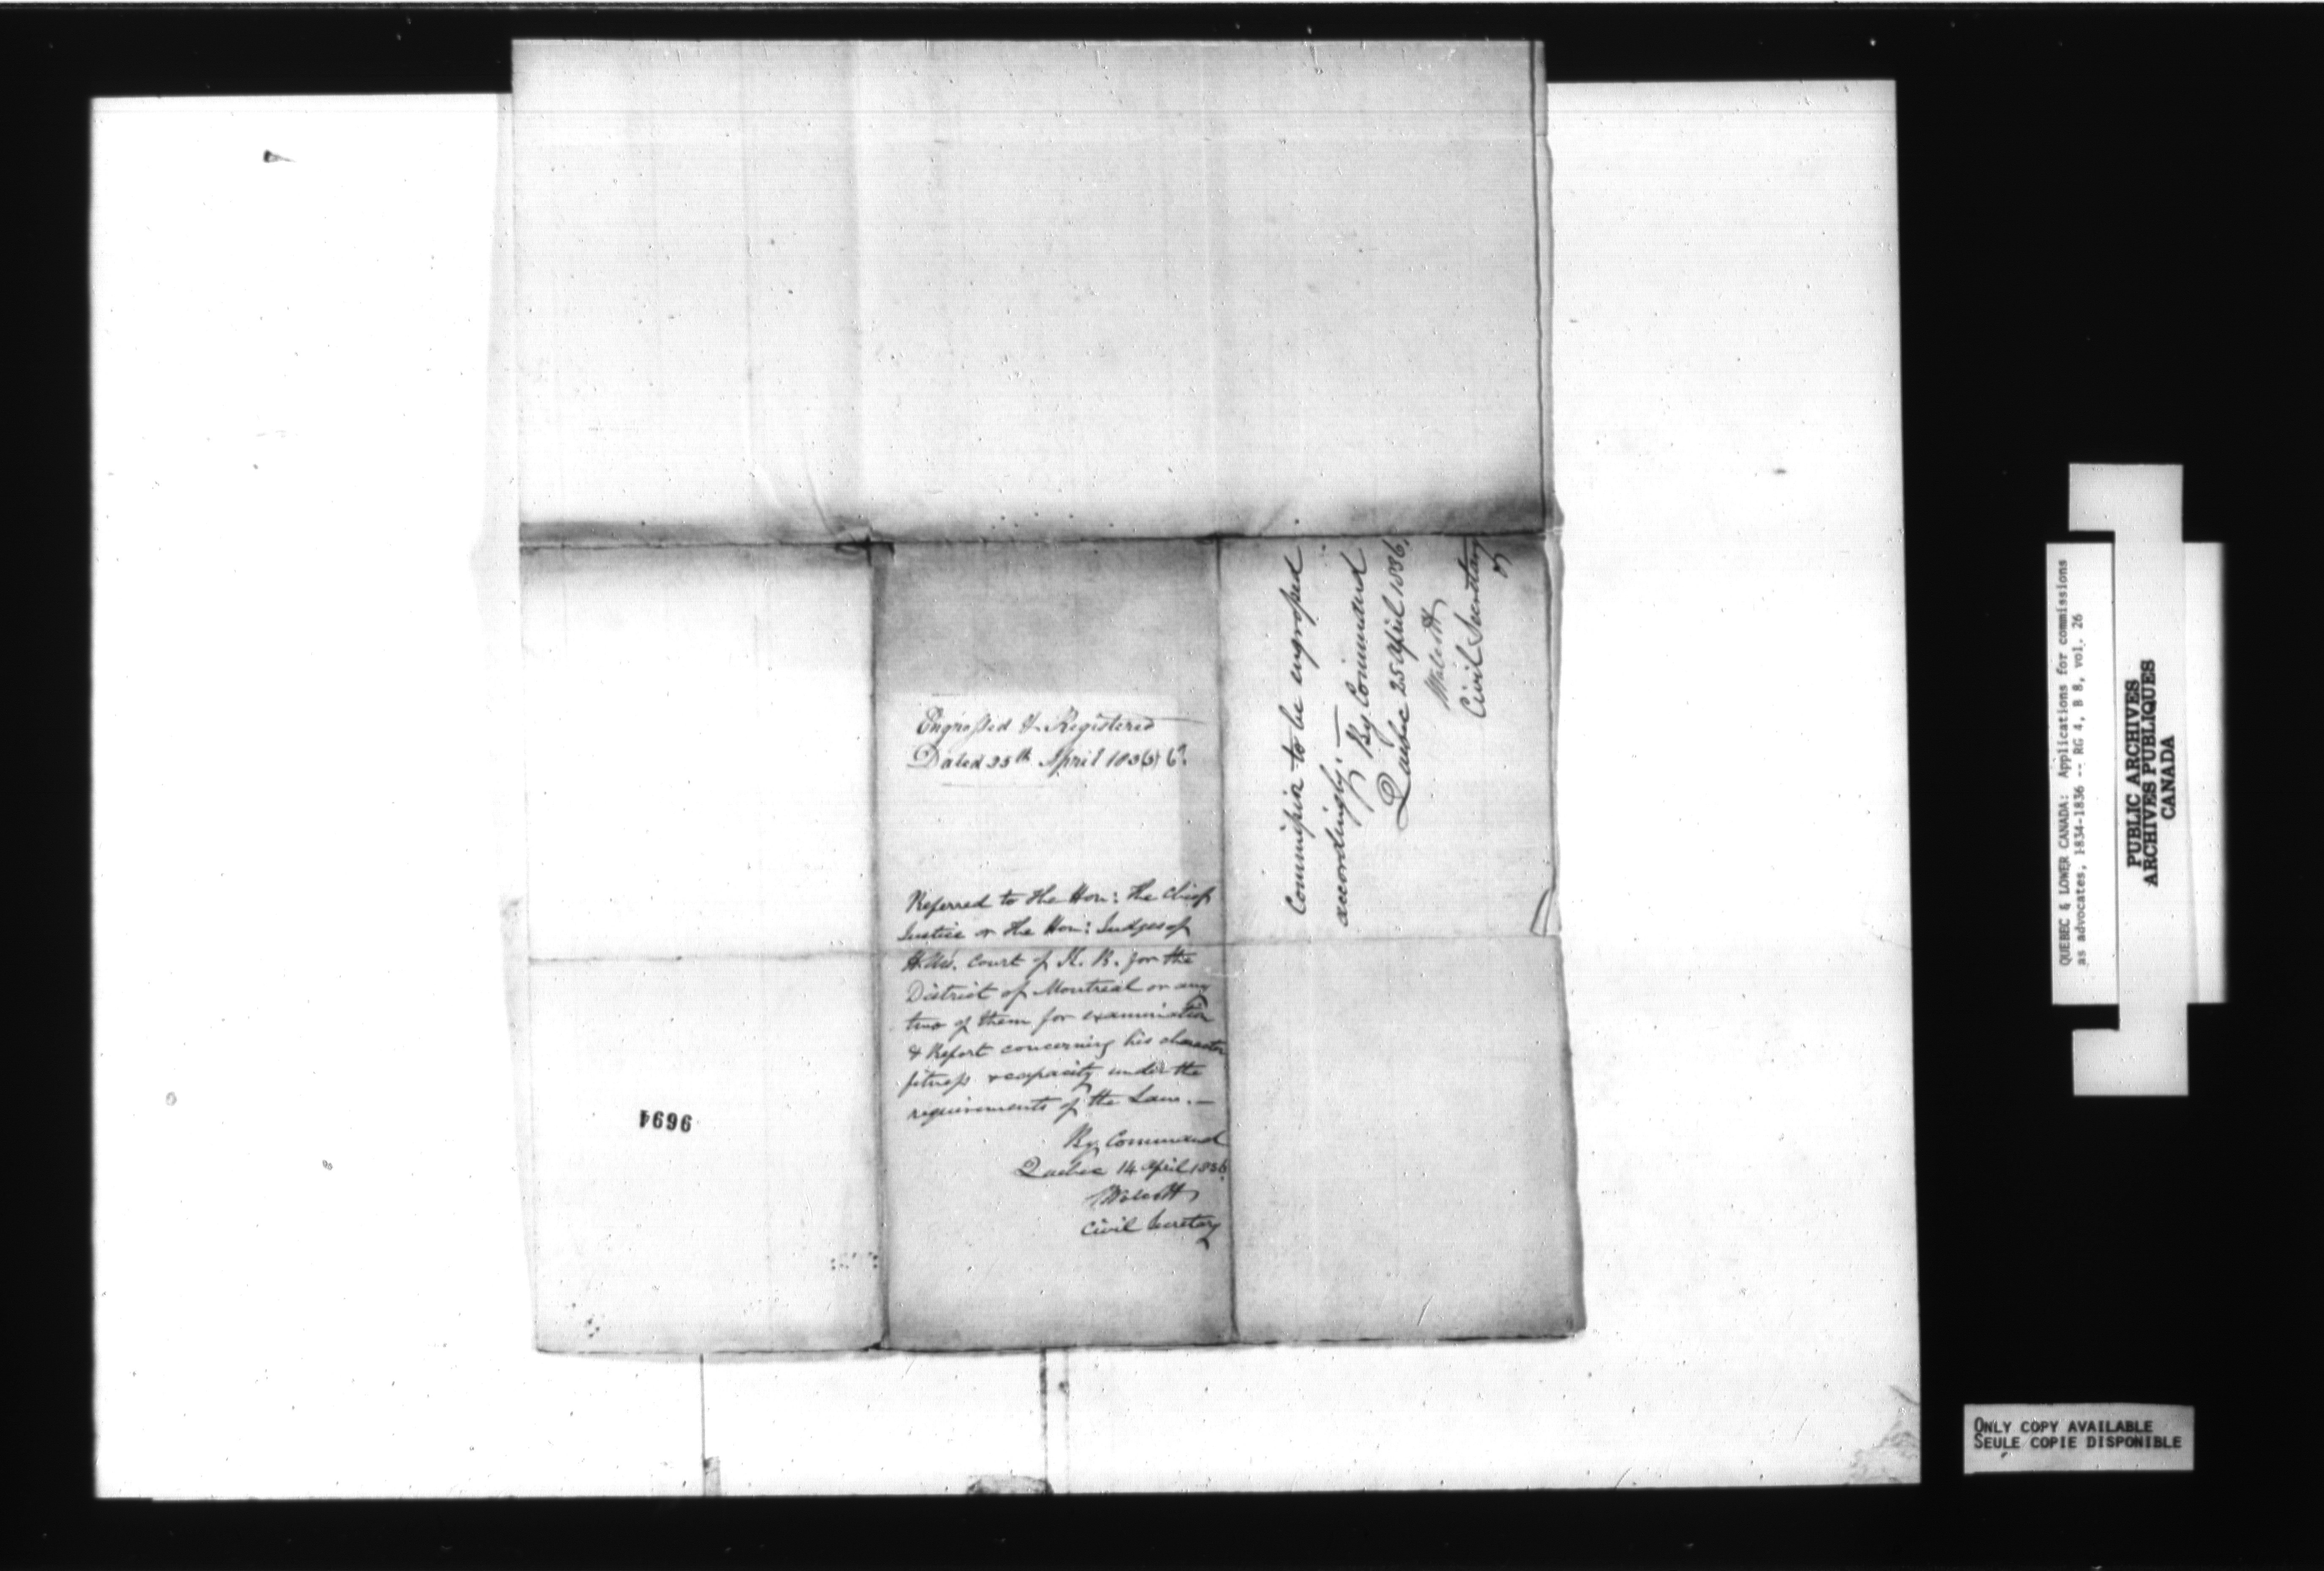 Engrossed & Registered
Dated 25th April 1836
Referred to the Hon: the Chief
Justice & the Hon: Judges of
H. Ms. Court of K. B. for the
District of Montreal or any
two of them for examination
& Report concerning his character
fitness & capacity under the
requirements of the Law. —
By Command
Quebec 14 April 1836
Walcott
Civil Secretary
Commission to be engrossed
accordingly. —
By Command
Quebec 25 April 1836.
Walcott
Civil Secretary
9694
QUEBEC & LOWER CANADA: Applications for commissions
as advocates, 1834-1836 -- RG 4, B 8, vol. 26
PUBLIC ARCHIVES
ARCHIVES PUBLIQUES
CANADA
ONLY COPY AVAILABLE
SEULE COPIE DISPONIBLE